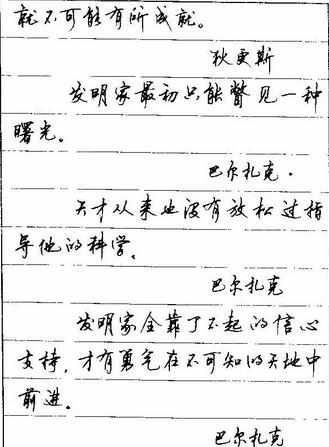 就不可能有所成就。
狄更斯
发明家最初只能瞥见一种
曙光。
巴尔扎克.
天才从来也没有放松过指
导他的科学。
巴尔扎克
发明家全靠了不起的信心
支持,才有勇气在不可知的天地中
前进。
巴尔扎克